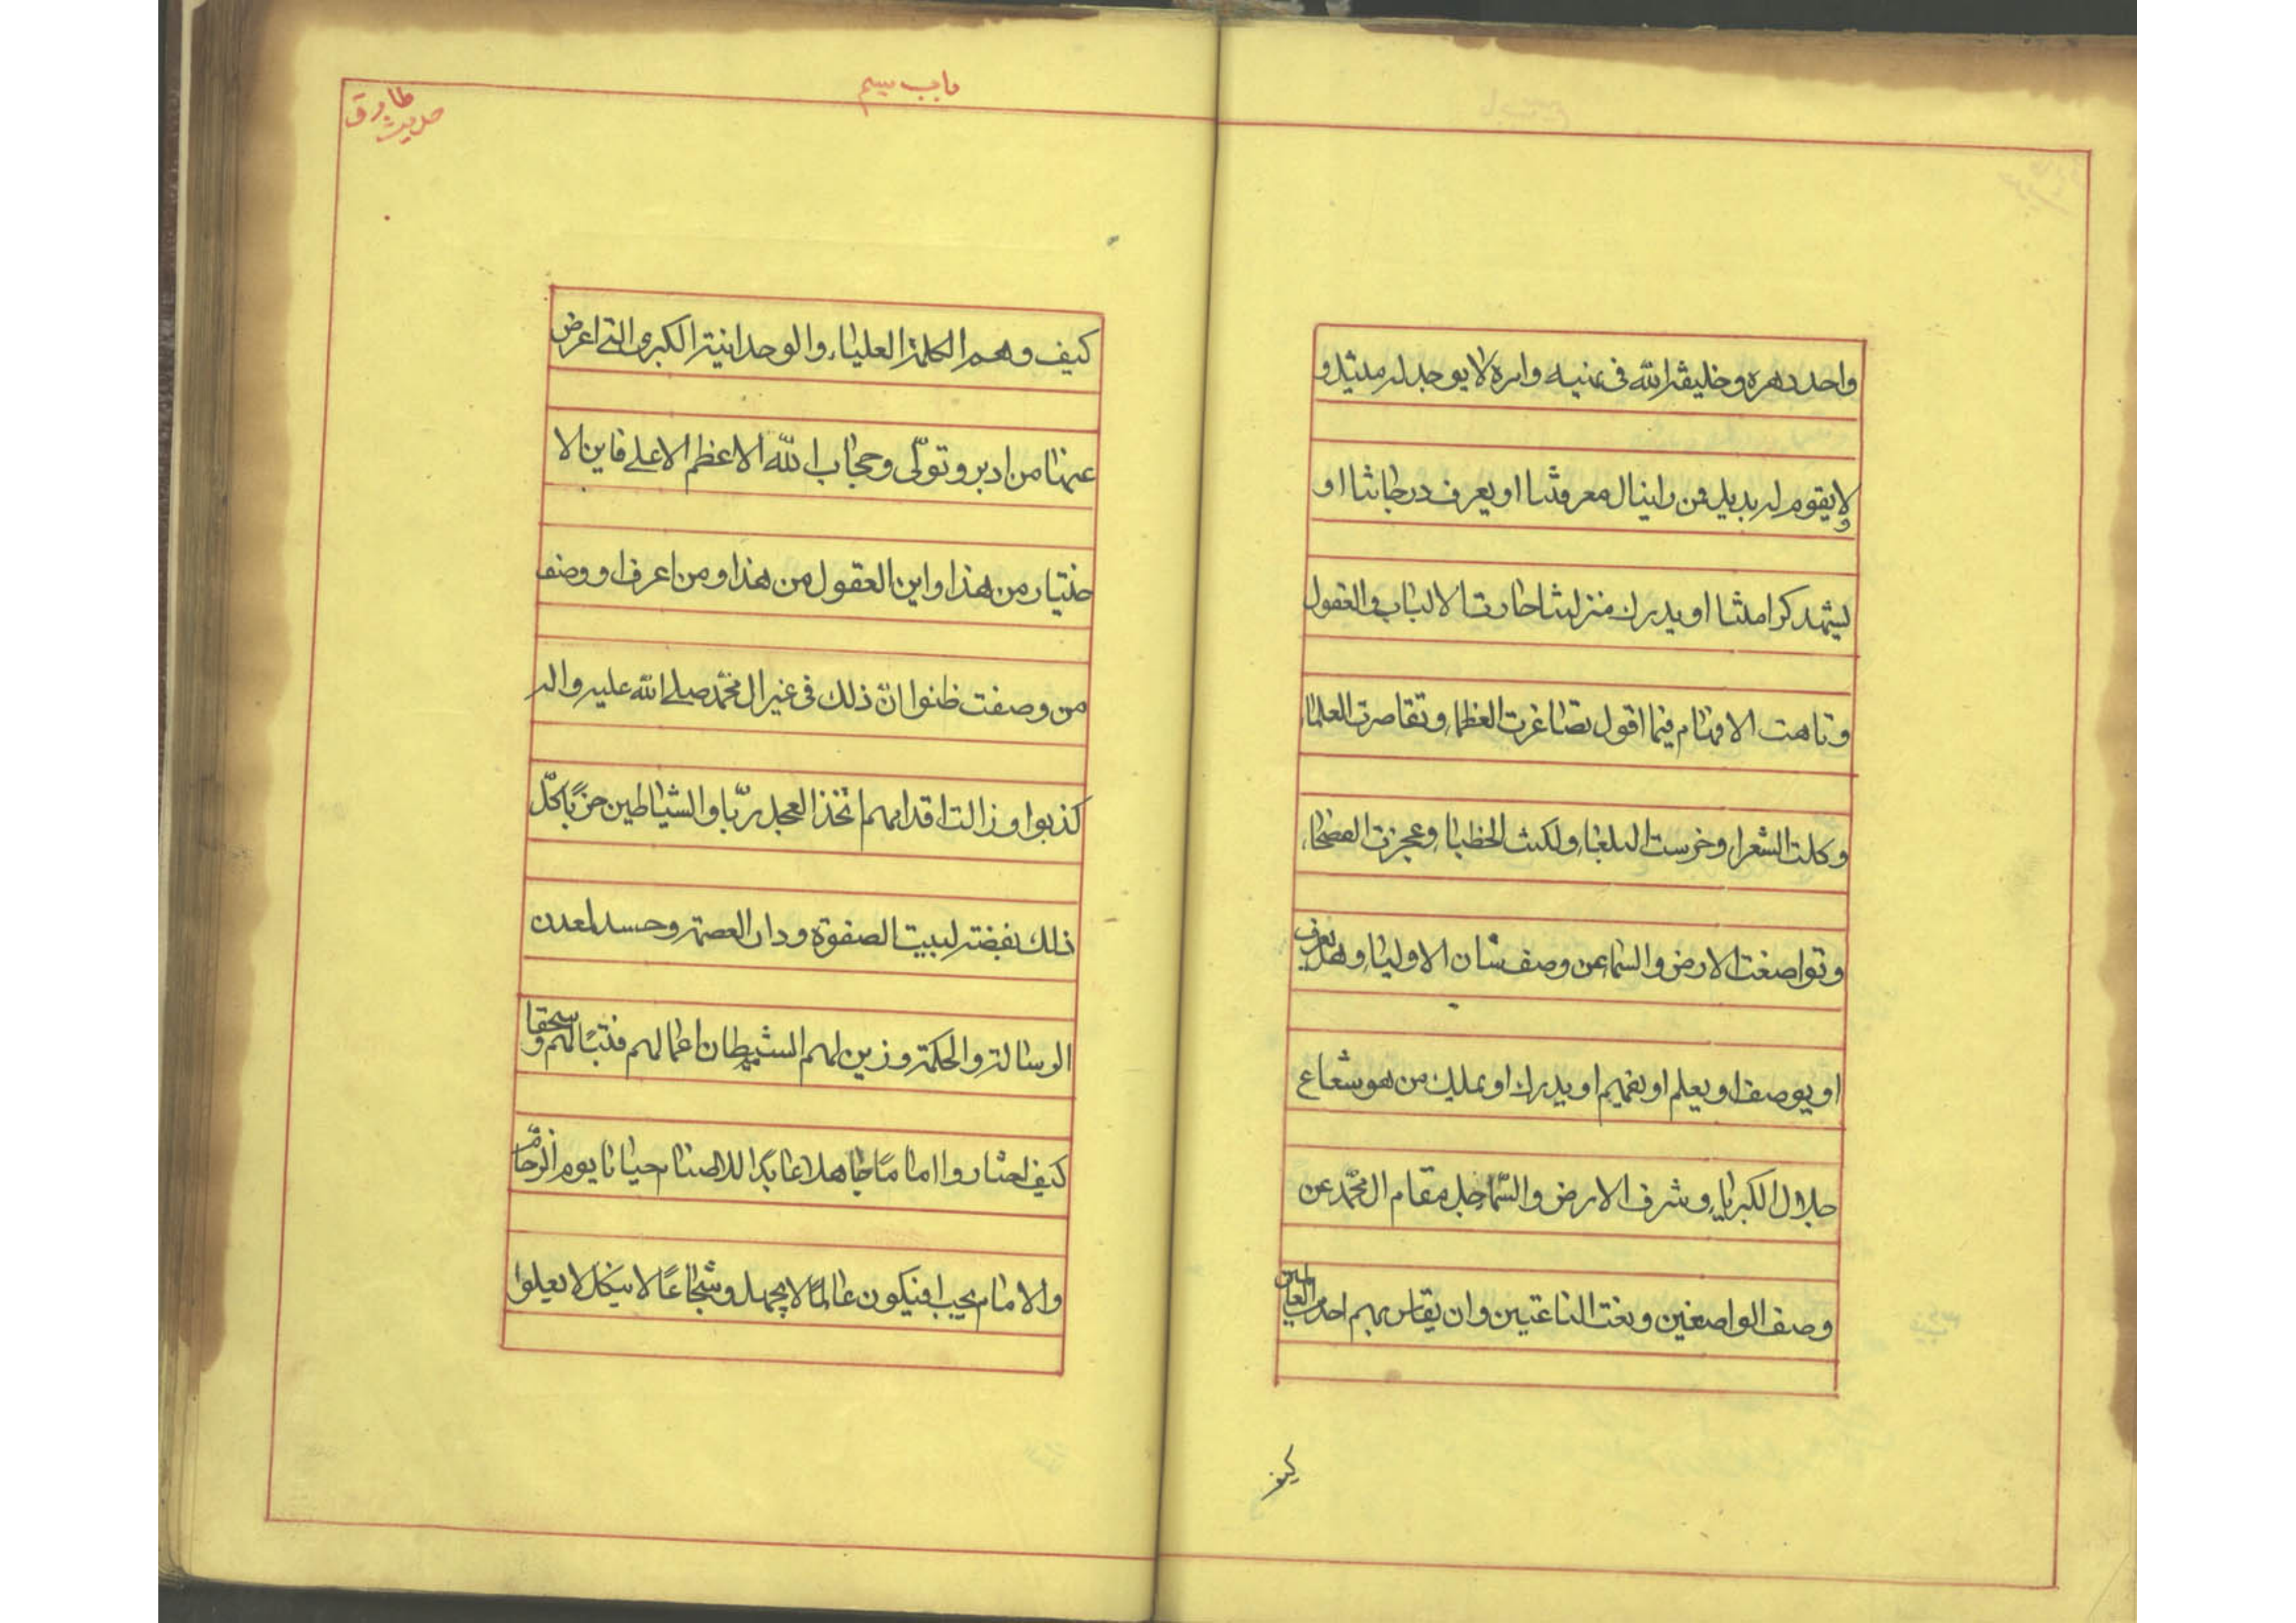 واحد دهره وخليفة الله في نهيه وامره لا يوجد له مثيل و
لا يقوم له بديل فمن ذا ينال معرفتنا او يعرف درجاتنا او
يشهد كرامتنا او يدرك منزلتنا حارت الالباب والعقول
وتاهت الافهام فيما اقول تصاغرت العظماء وتقاصرت العلماء
وكلت الشعراء وخرست البلغاء ولكنت الخطباء وعجزت الفصحاء
وتواضعت الارض والسماء عن وصف شان الاولياء وهل يعرف
او يوصف او يعلم او يفهم او يدرك او يملك من هو شعاع
جلال الكبرياء وشرف الارض والسماء جل مقام ال محمد عن
وصف الواصفين ونعت الناعتين وان يقاس بهم احد من العالمين
كيف
باب سيم
حديث طارق
كيف وهم الكلمة العلياء والوحدانية الكبرى التي اعرض
عنها من ادبر وتولّى وحجاب الله الاعظم الاعلى فاين الا
ختيار من هذا واين العقول من هذا ومن اعرف او وصف
من وصفت ظنوا انّ ذلك في غير ال محمّد صلى الله عليه واله
كذبوا وزالت اقدامهم اتخذ العجل ربّا والشياطين حزبًا كلّ
ذلك بغضة لبيت الصفوة ودار العصمة وحسد لمعدن
الرسالة والحكمة وزين لهم الشيطان اعمالهم فتبّا لهم وسحقا
كيف اختاروا اماما جاهلا عابدًا للاصنام جبانا يوم الزحام
والامام يجب ان يكون عالمًا لا يجهل وشجاعًا لا ينكل لا يعلوا